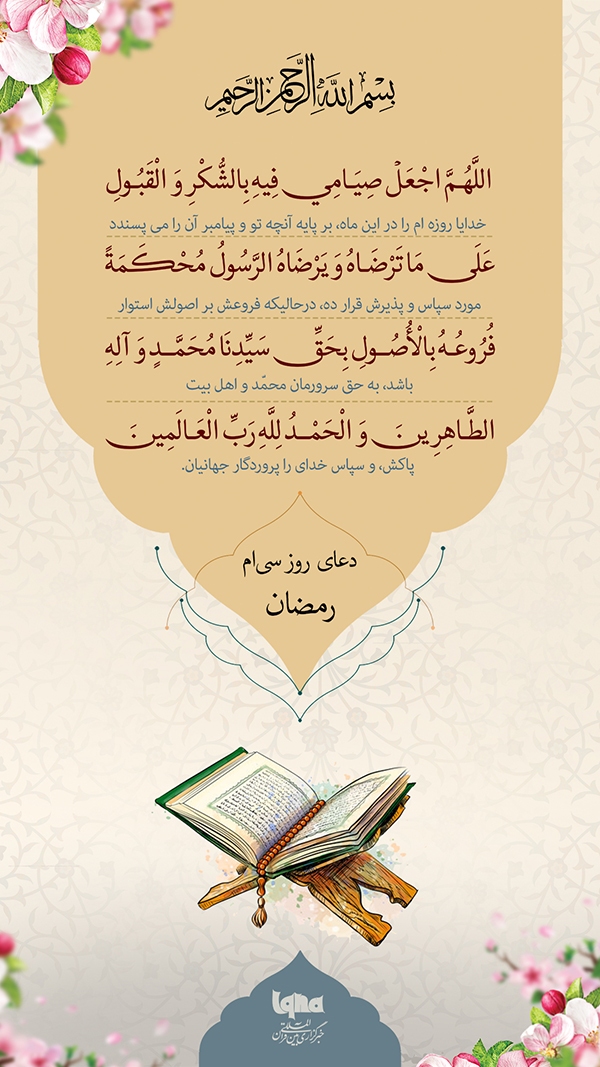 بِسْمِ اللَّهِ الرَّحْمَنِ الرَّحِيمِ
اللَّهُمَّ اجْعَلْ صِيَامِي فِيهِ بِالشُّكْرِ وَ الْقَبُولِ
خدایا روزه ام را در این ماه، بر پایه آنچه تو و پیامبر آن را می پسندد
عَلَى مَا تَرْضَاهُ وَ يَرْضَاهُ الرَّسُولُ مُحْكَمَةً
مورد سپاس و پذیرش قرار ده، درحالیکه فروعش بر اصولش استوار
فُرُوعُهُ بِالْأُصُولِ بِحَقِّ سَيِّدِنَا مُحَمَّدٍ وَ آلِهِ
باشد، به حق سرورمان محمّد و اهل بیت
الطَّاهِرِينَ وَ الْحَمْدُ لِلَّهِ رَبِّ الْعَالَمِينَ
پاکش، و سپاس خدای را پروردگار جهانیان.
دعای روز سی‌ام
رمضان
Iqna
خبرگزاری بین المللی قرآن